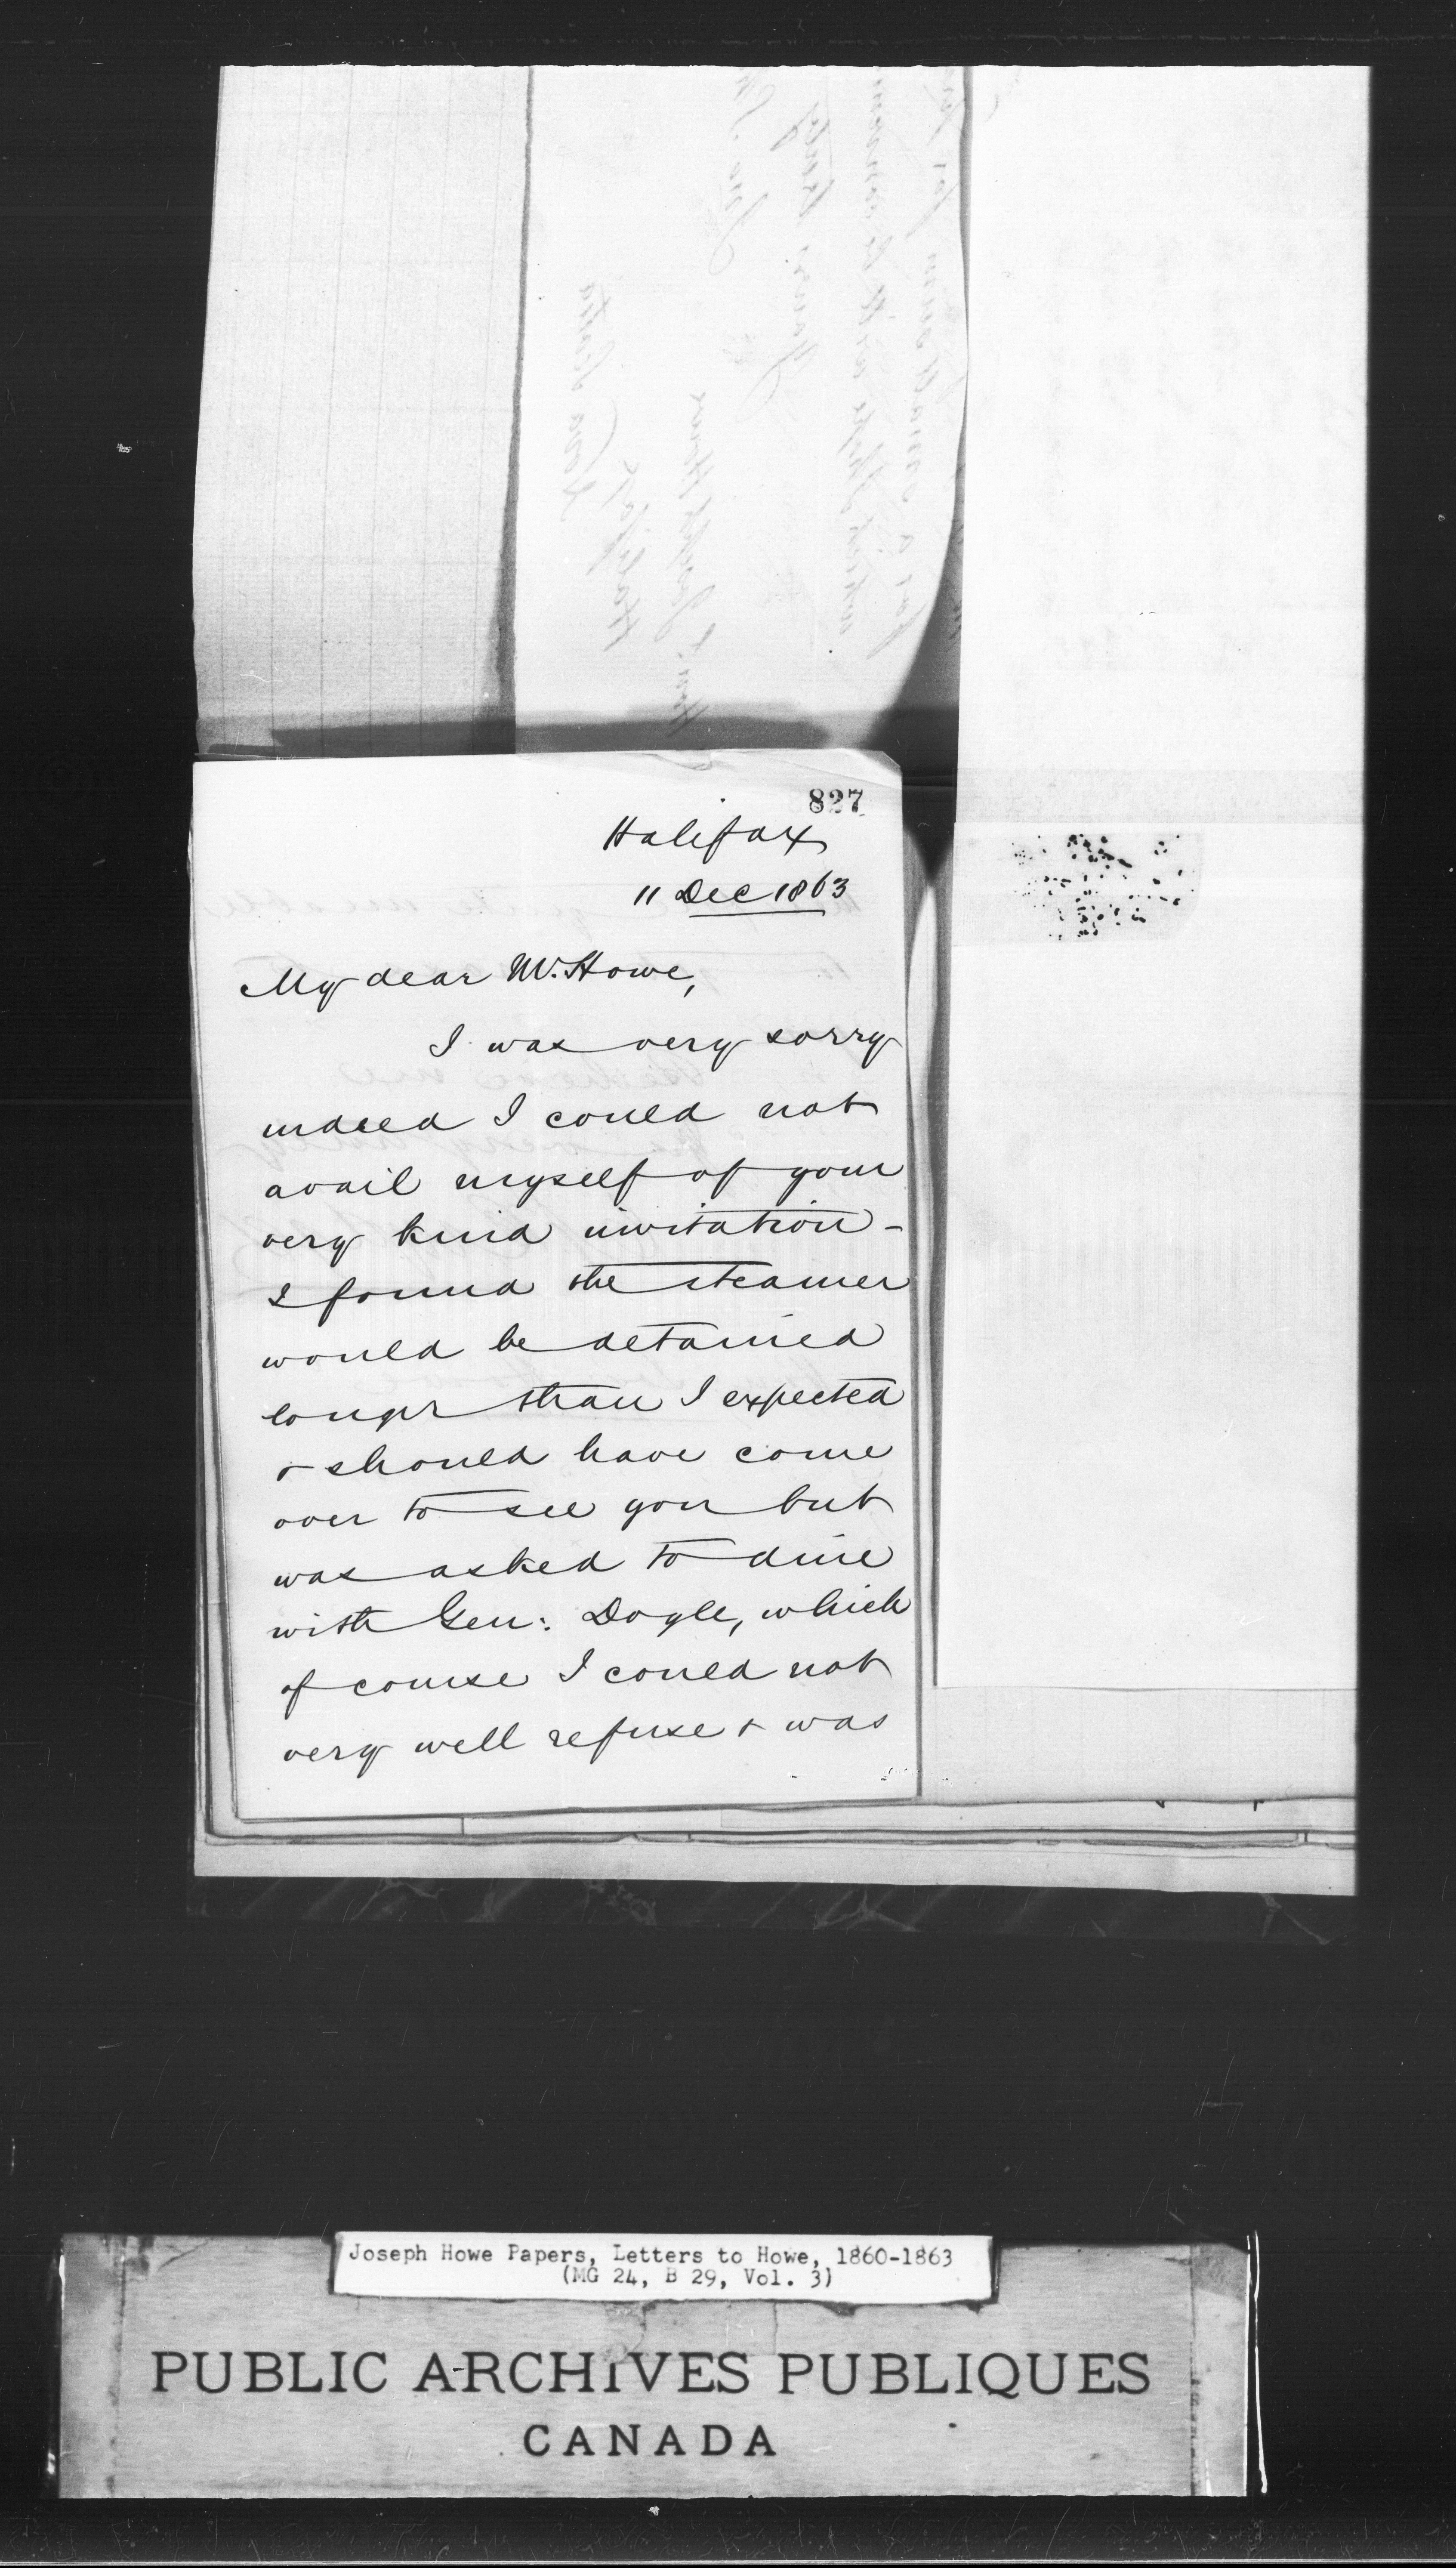 827
Halifax
11 Dec 1863
My dear Mr. Howe,
I was very sorry
indeed I could not
avail myself of your
very kind invitation -
I found the steamer
would be detained
longer than I expected
& should have come
over to see you but
was asked to dine
with Gen: Doyle, which
of course I could not
very well refuse & was
Joseph Howe Papers, Letters to Howe, 1860-1863
(MG 24, B 29, Vol. 3)
PUBLIC ARCHIVES PUBLIQUES
CANADA